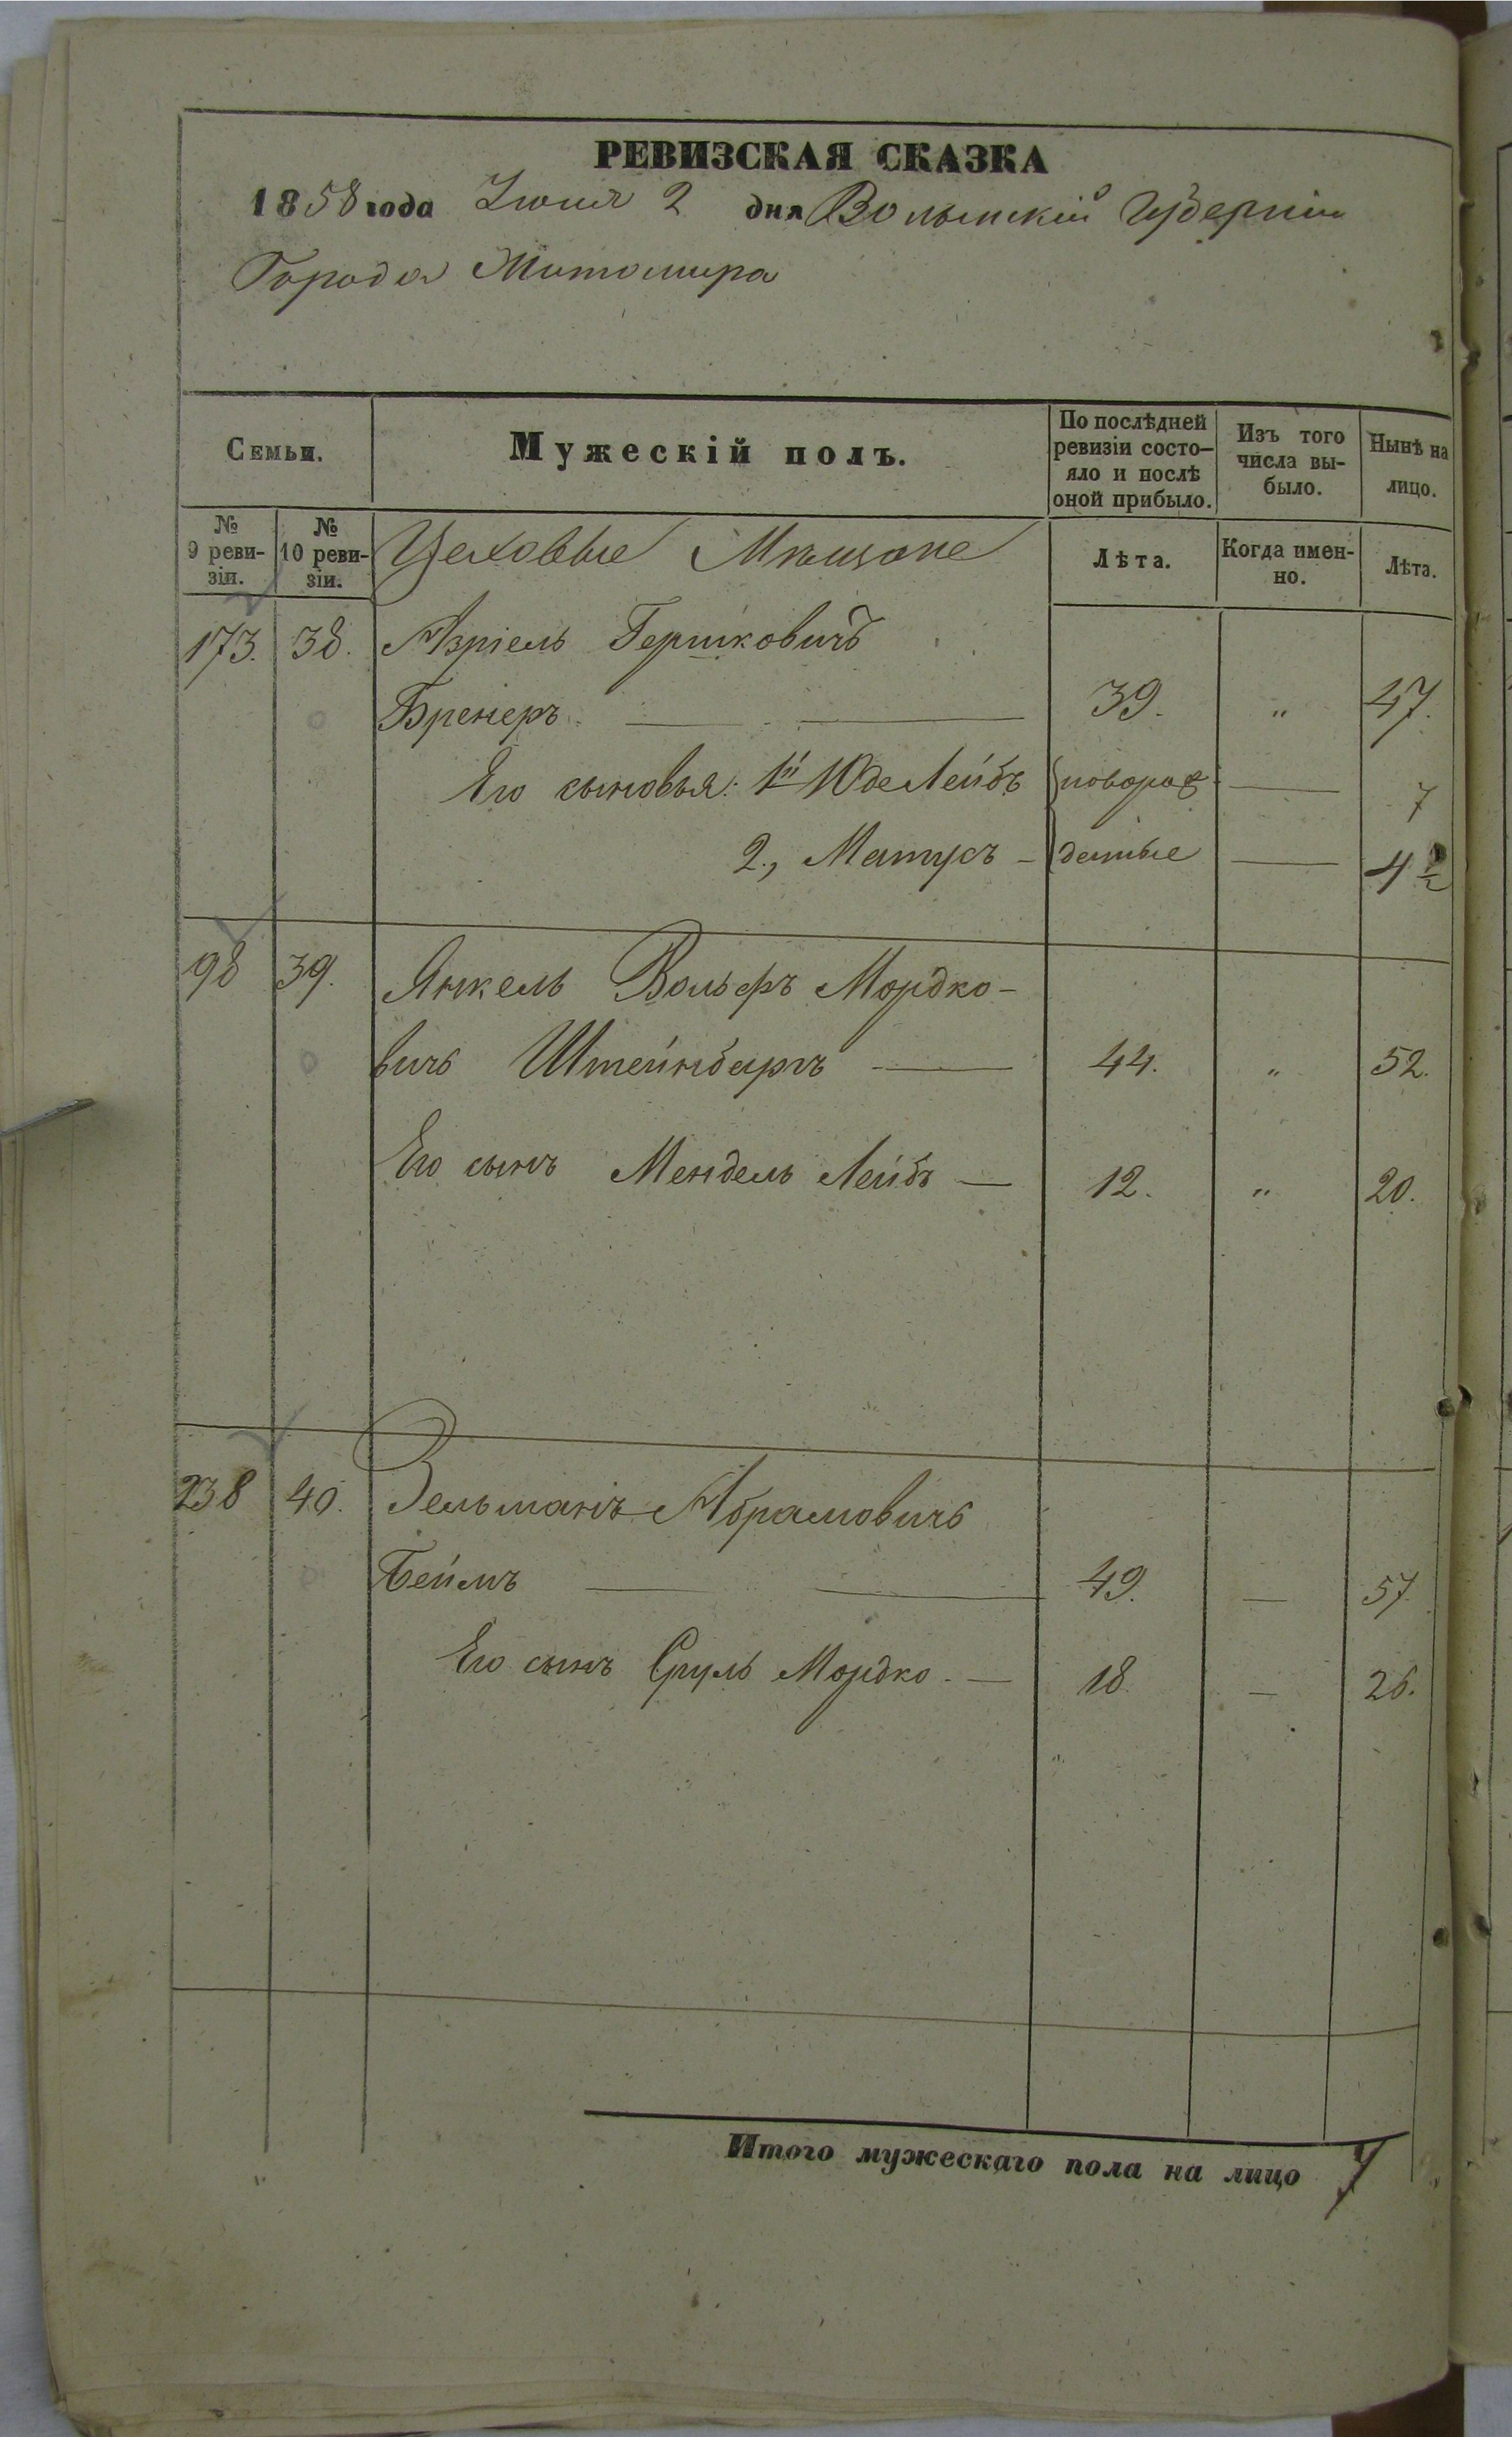 РЕВИЗСКАЯ СКАЗКА
1858 года Іюня 2 дня Волынскій Губерніи
Города Житомира
Семьи.
Мужескій полъ.
По послѣдней ревизіи состо-яло и послѣ оной прибыло.
Изъ того числа вы-было.
Нынѣ на лицо.
№ 9 реви-зіи.
№ 10 реви-зіи.
Цеховые Мѣщане
Лѣта.
Когда имен-но.
Лѣта.
173. 38. Азріель Гершковичъ
Бренеръ 39. " 47.
Его сыновья: 1й Юде Лейбъ новорож 7
2, Матусъ - денные 4 ½
98 39. Янкель Вольфъ Мордко-
вичъ Штейнбаргъ 44. " 52.
Его сынъ Мендель Лейбъ — 12. " 20.
238 40. Зельманъ Абрамовичъ
Беймъ 49. — 57.
Его сынъ Сруль Мордко. — 18. — 26.
Итого мужескаго пола на лицо 7